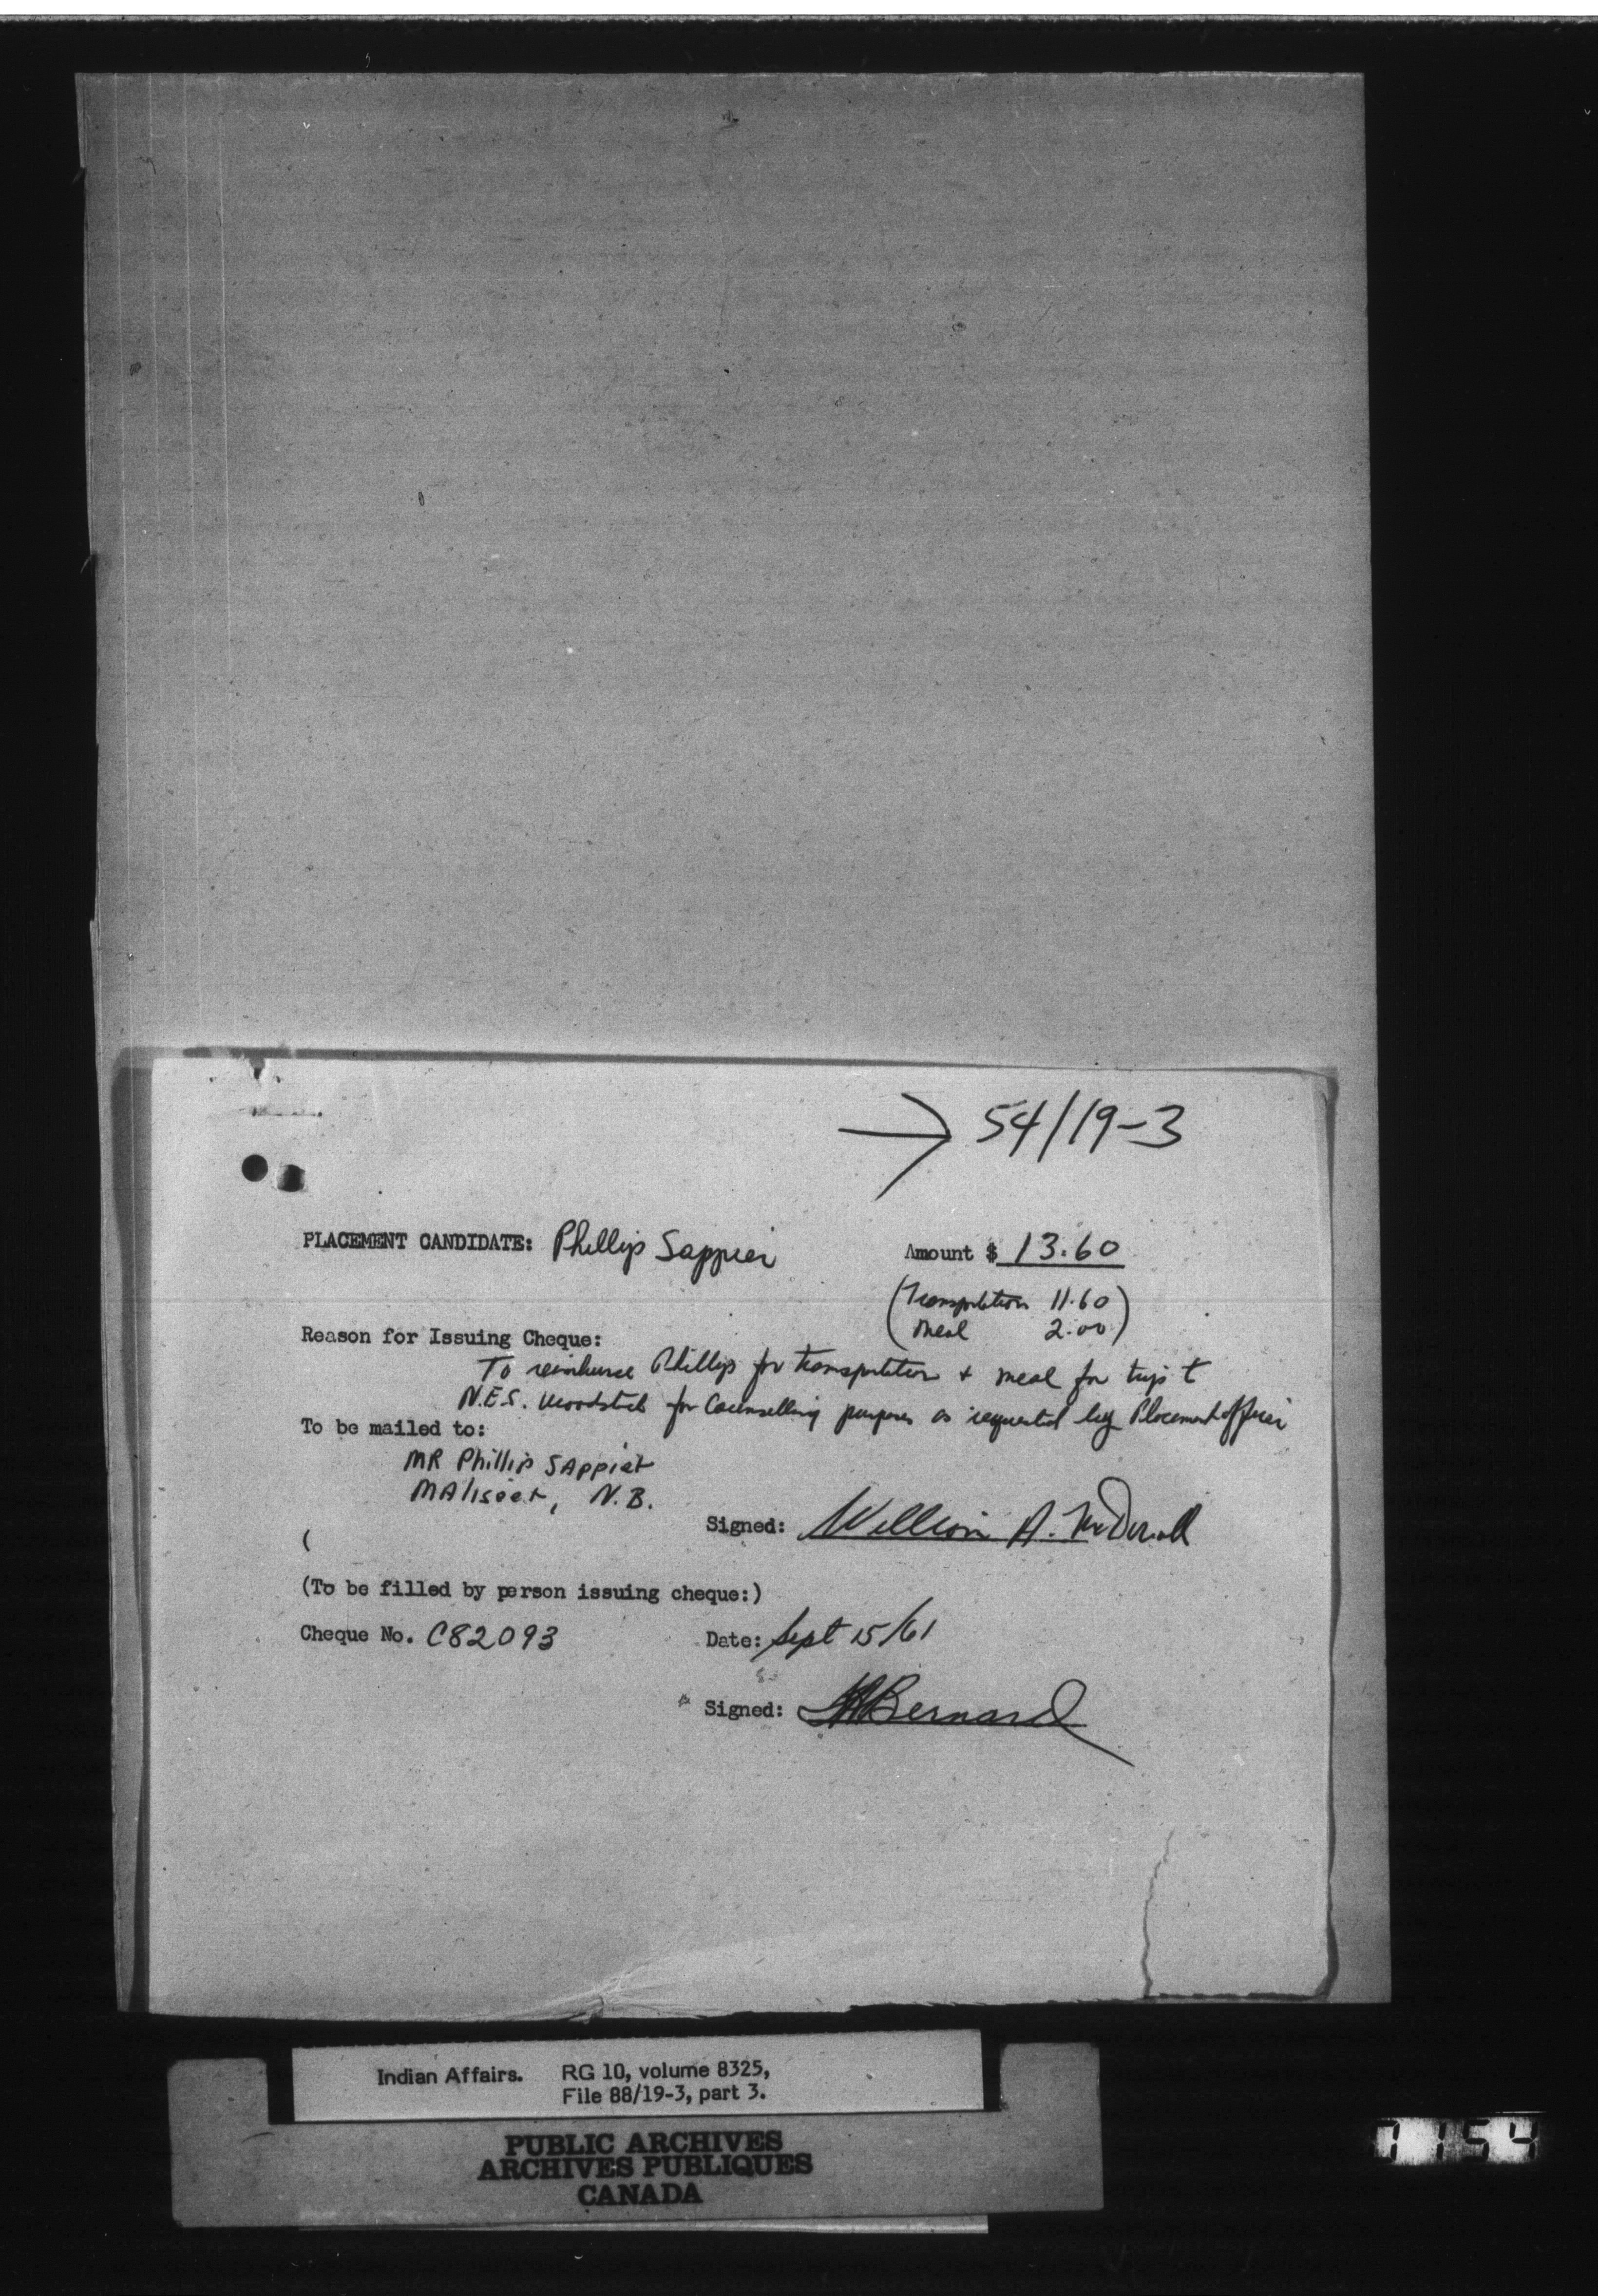 → 54/19-3
PLACEMENT CANDIDATE: Phillip Sappier
Amount $ 13.60
(Transportation 11.60
Meal 2.00)
Reason for Issuing Cheque:
To reimburse Phillip for transportation + meal for trip to
N.E.S. Woodstock for Counselling purposes as requested by Placement officer
To be mailed to:
MR Phillip SAppier
MAliseet, N.B.
Signed: William A. McDonald
(
(To be filled by person issuing cheque:)
Cheque No. C82093
Date: Sept 15/61
Signed: Bernard
Indian Affairs. RG 10, volume 8325,
File 88/19-3, part 3.
PUBLIC ARCHIVES
ARCHIVES PUBLIQUES
CANADA
1154